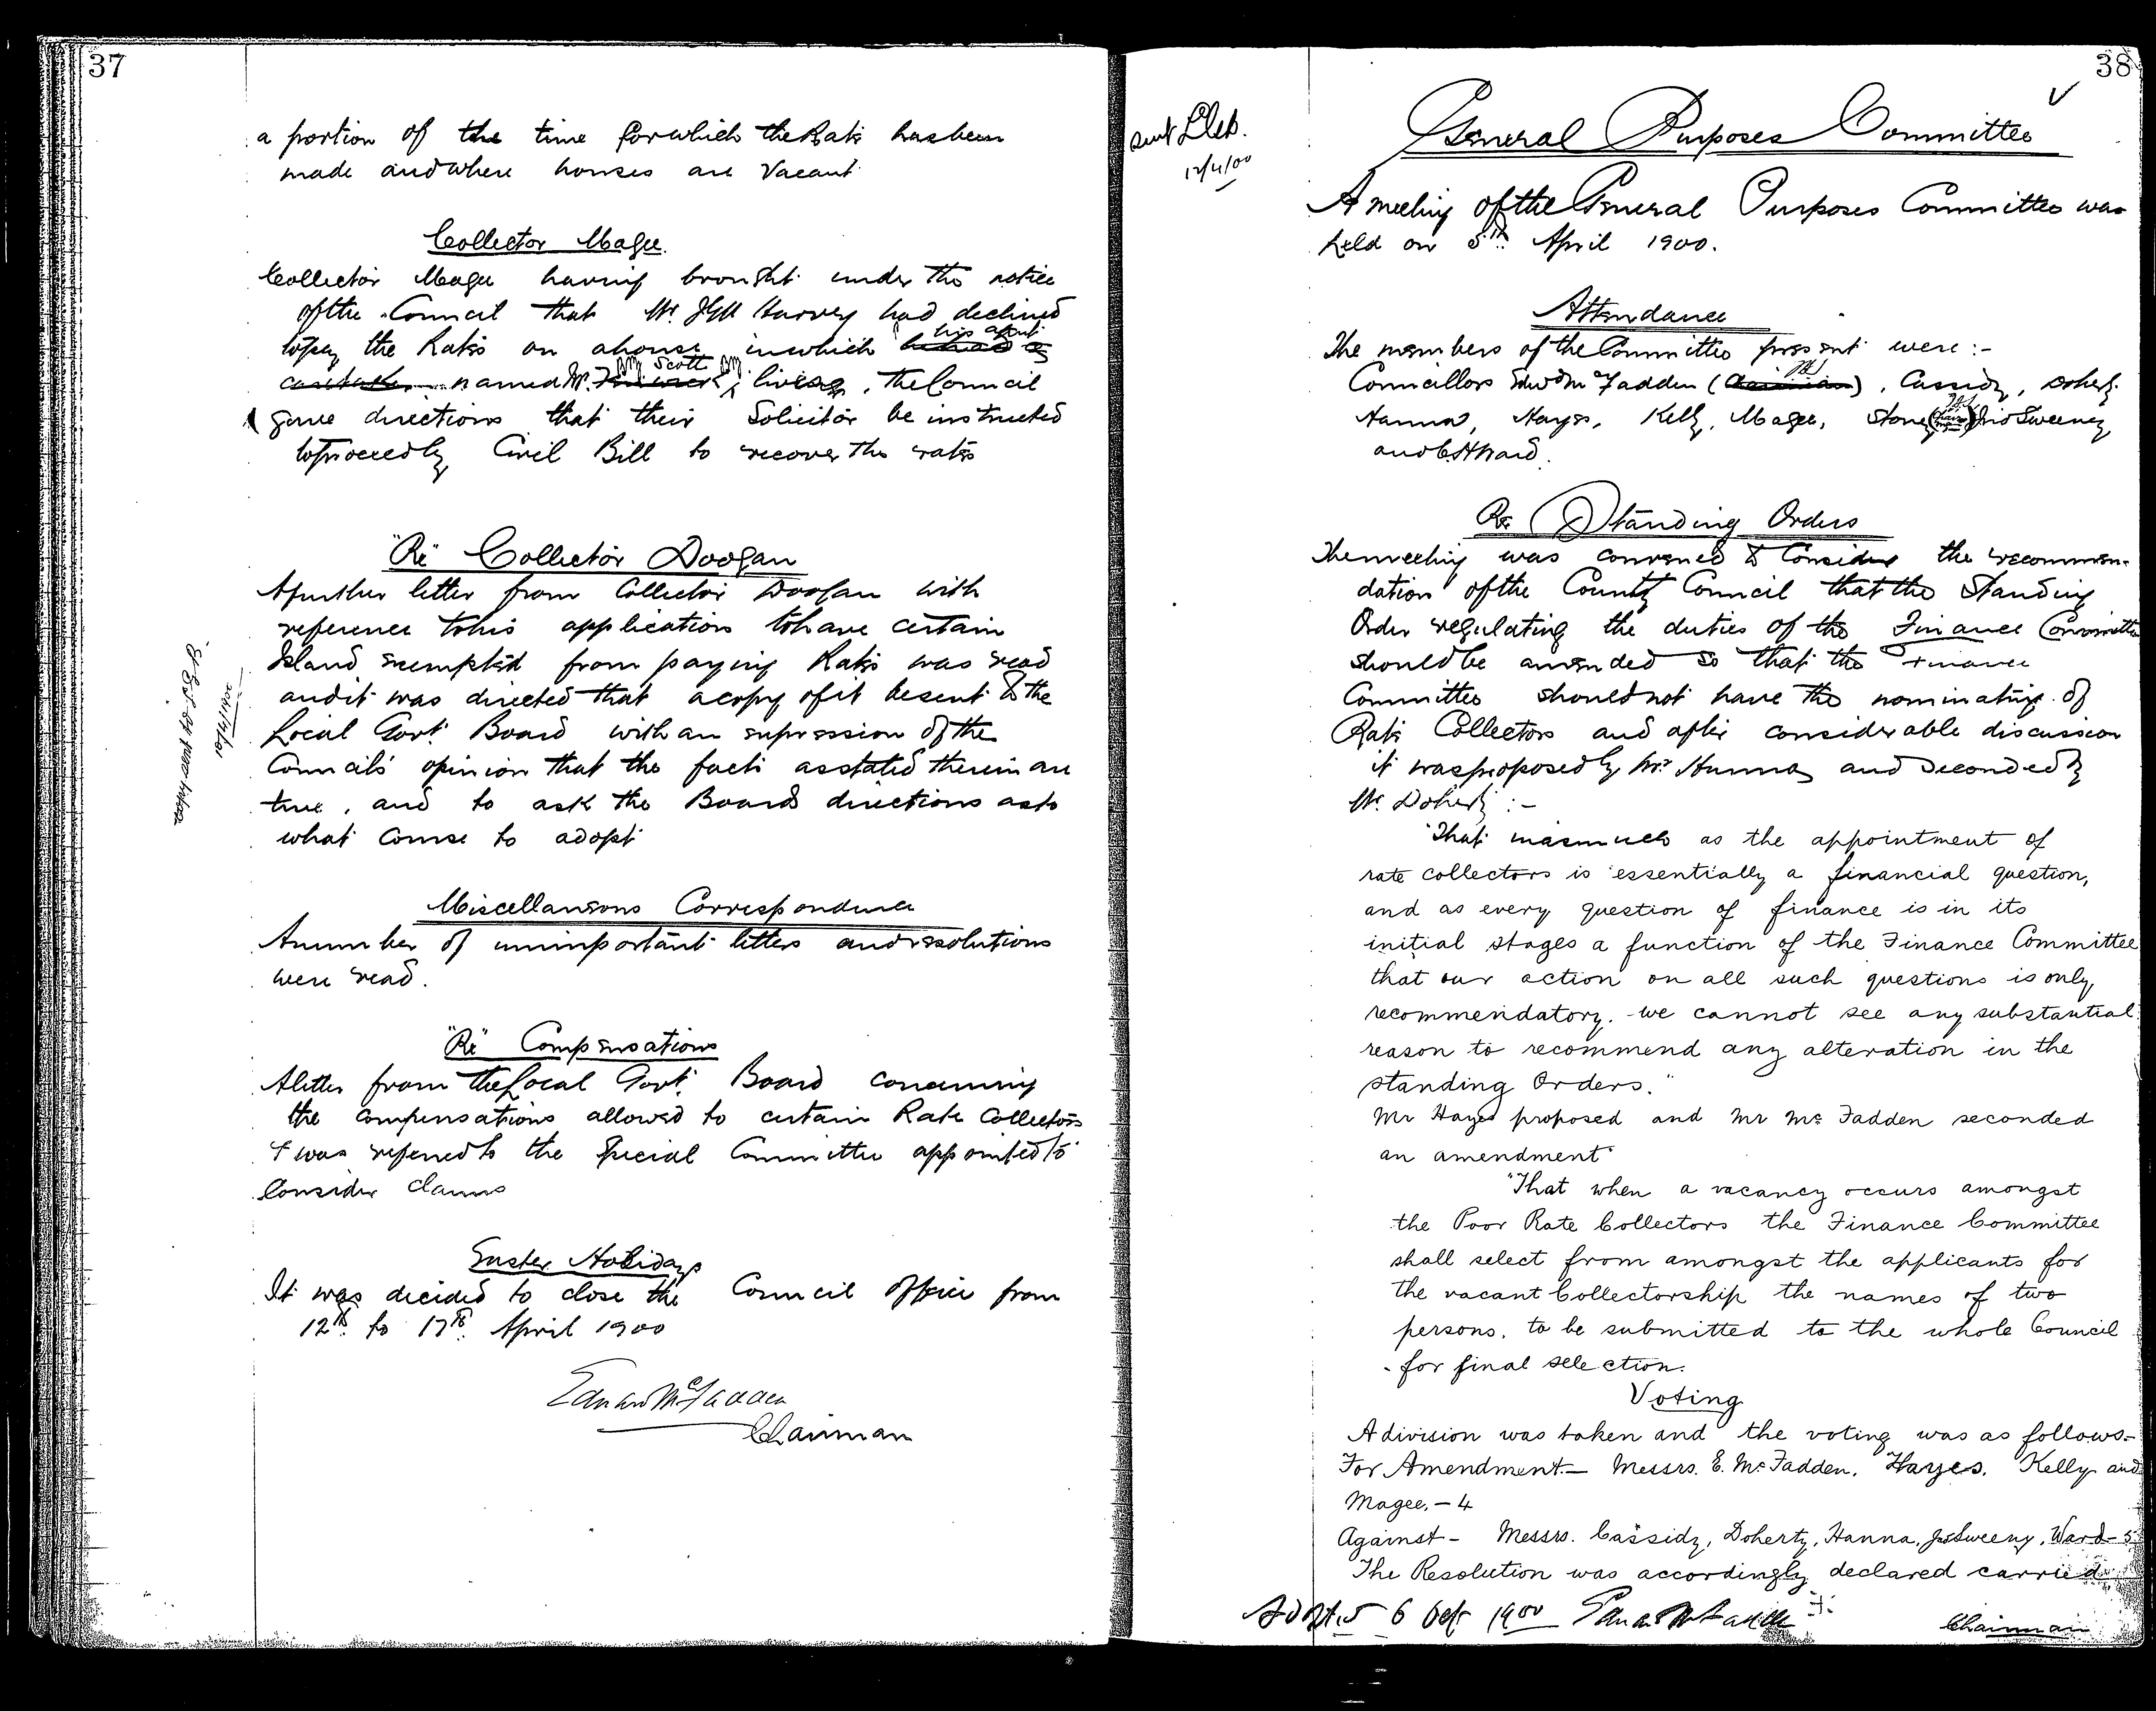 37
a portion of the time for which the Rate has been
made and where houses are Vacant
Collector Magee.
Collector Magee having brought under the notice
of the Council that Mr. Harvey had declined
to pay the Rates on a house in which his agent
named Mr. Scott lives, the Council
gave directions that their Solicitor be instructed
to proceed by Civil Bill to recover the rates
"Re" Collector Doogan
A further letter from Collector Doogan with
reference to his application to have certain
Island exempted from paying Rates was read
and it was directed that a copy of it be sent to the
Local Govt. Board with an expression of the
Councils' opinion that the facts as stated therein are
true, and to ask the Boards directions as to
what course to adopt
Miscellaneous Correspondence
A number of unimportant letters and resolutions
were read.
"Re" Compensations
A letter from the Local Govt. Board concerning
the compensations allowed to certain Rate Collectors
was referred to the Special Committee appointed to
Consider claims
Easter Holidays
It was decided to close the Council offices from
12th. to 17th. April 1900
Edward McFadden
Chairman
38
12/4/00
General Purposes Committee
A meeting of the General Purposes Committee was
held on 5th. April 1900.
Attendance
The members of the Committee present were:-
Councillors Edwd McFadden (Chairman), Cassidy, Doherty,
Hanna, Hayes, Kelly, Magee, Stoney, Jno Sweeney
and Ward.
Re Standing Orders
The meeting was convened to Consider the recommen-
dation of the County Council that the Standing
Order regulating the duties of the Finance Committee
should be amended so that the Finance
Committee should not have the nominating of
Rate Collectors and after considerable discussion
it was proposed by Mr. Hanna and Seconded by
Mr. Doherty:-
"That inasmuch as the appointment of
rate collectors is essentially a financial question,
and as every question of finance is in its
initial stages a function of the Finance Committee
that our action on all such questions is only
recommendatory. we cannot see any substantial
reason to recommend any alteration in the
standing Orders."
Mr Hayes proposed and Mr McFadden seconded
an amendment
"That when a vacancy occurs amongst
the Poor Rate Collectors the Finance Committee
shall select from amongst the applicants for
the vacant Collectorship the names of two
persons, to be submitted to the whole Council
for final selection.
Voting
A division was taken and the voting was as follows:-
For Amendment - Messrs. E. McFadden, Hayes, Kelly and
Magee, - 4
Against - Messrs. Cassidy, Doherty, Hanna, Jno Sweeny, Ward - 5
The Resolution was accordingly declared carried
Adopted 6 1900 Edward McFadden
Chairman